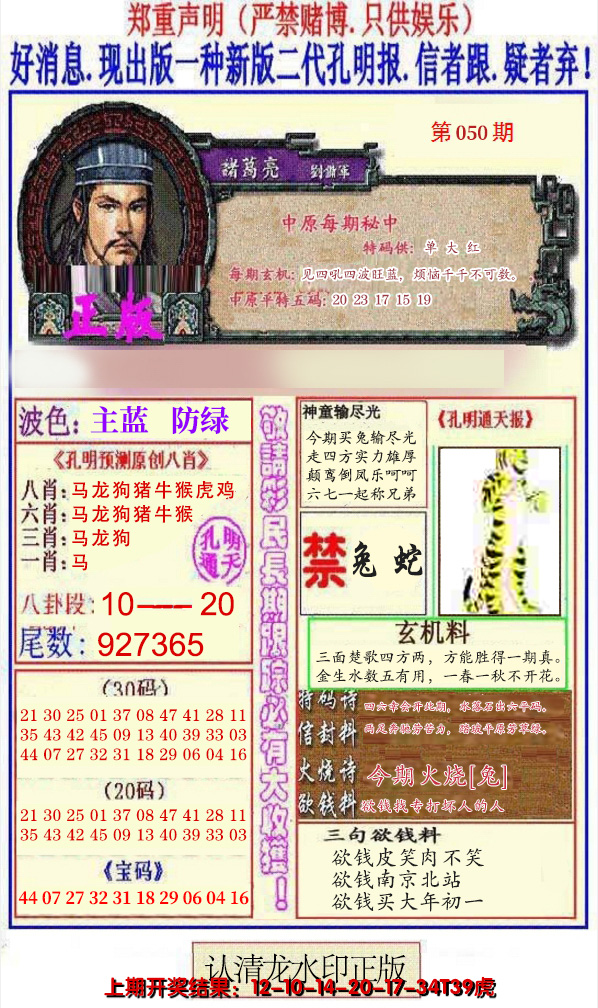 郑重声明（严禁赌博.只供娱乐）
好消息.现出版一种新版二代孔明报.信者跟.疑者弃！
第 050 期
諸葛亮 劉備軍
中原每期秘中
特码供：单 大 红
每期玄机：见四吼四波旺蓝，烦恼千千不可数。
中原平特五码：20 23 17 15 19
正版
波色：主蓝 防绿
《孔明预测原创八肖》
八肖：马龙狗猪牛猴虎鸡
六肖：马龙狗猪牛猴
三肖：马龙狗
一肖：马
孔明通天
八卦段：10——20
尾数：927365
（30码）
21 30 25 01 37 08 47 41 28 11
35 43 42 45 09 13 40 39 33 03
44 07 27 32 31 18 29 06 04 16
（20码）
21 30 25 01 37 08 47 41 28 11
35 43 42 45 09 13 40 39 33 03
《宝码》
44 07 27 32 31 18 29 06 04 16
敬請彩民長期跟踪必有大收獲！
神童输尽光
今期买兔输尽光
走四方实力雄厚
颠鸾倒凤乐呵呵
六七一起称兄弟
《孔明通天报》
禁 兔 蛇
玄机料
三面楚歌四方两，方能胜得一期真。
金生水数五有用，一春一秋不开花。
特码诗 四六幸会开此期，水落石出六平码。
信封料 两足奔驰劳苦力，踏破平原芳草绿。
火烧诗 今期火烧[兔]
欲钱料 欲钱找专打坏人的人
三句欲钱料
欲钱皮笑肉不笑
欲钱南京北站
欲钱买大年初一
认清龙水印正版
上期开奖结果：12-10-14-20-17-34T39虎